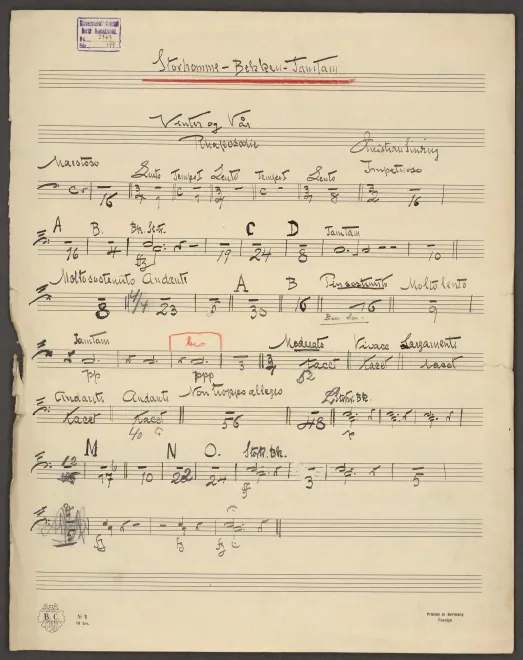 Stortromme - Bekken - Tamtam
Vinter og Vår
Rhapsodie
Maestoso Lento Tempo I Lento Tempo I Lento Impetuoso
16 1 1 8 16
A B. Bk. Str. C D Tamtam
16 4 ffz 19 24 8 10
Molto sostenuto Andante A B Più sostenuto Molto lento
8 4/4 23 30 16 16 9
Tamtam Moderato Vivace Largamente
pp ppp 3 Tacet Tacet Tacet
52
Andante Andante Non troppo allegro Stortr. Bk.
Tacet Tacet 56 48 p
40
M N O. Stortr. Bk.
17 10 22 24 ff 3 5
B.C.
№ 1
Printed in Germany